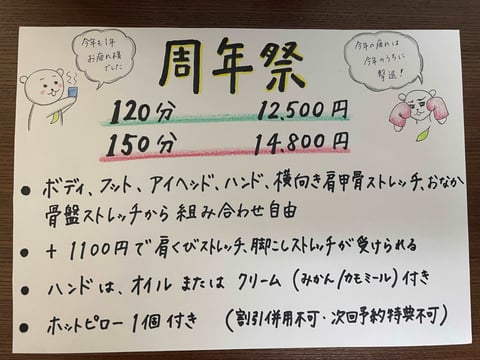 今年も1年
お疲れ様
でした
周年祭
今年の疲れは
今年のうちに
撃退!
120分 12,500円
150分 14,800円
● ボディ、フット、アイヘッド、ハンド、横向き肩甲骨ストレッチ、おなか
骨盤ストレッチから組み合わせ自由
● +1100円で肩くびストレッチ、脚こしストレッチが受けられる
● ハンドは、オイル または クリーム (みかん/カモミール) 付き
● ホットピロー1個付き (割引併用不可・次回予約特典不可)